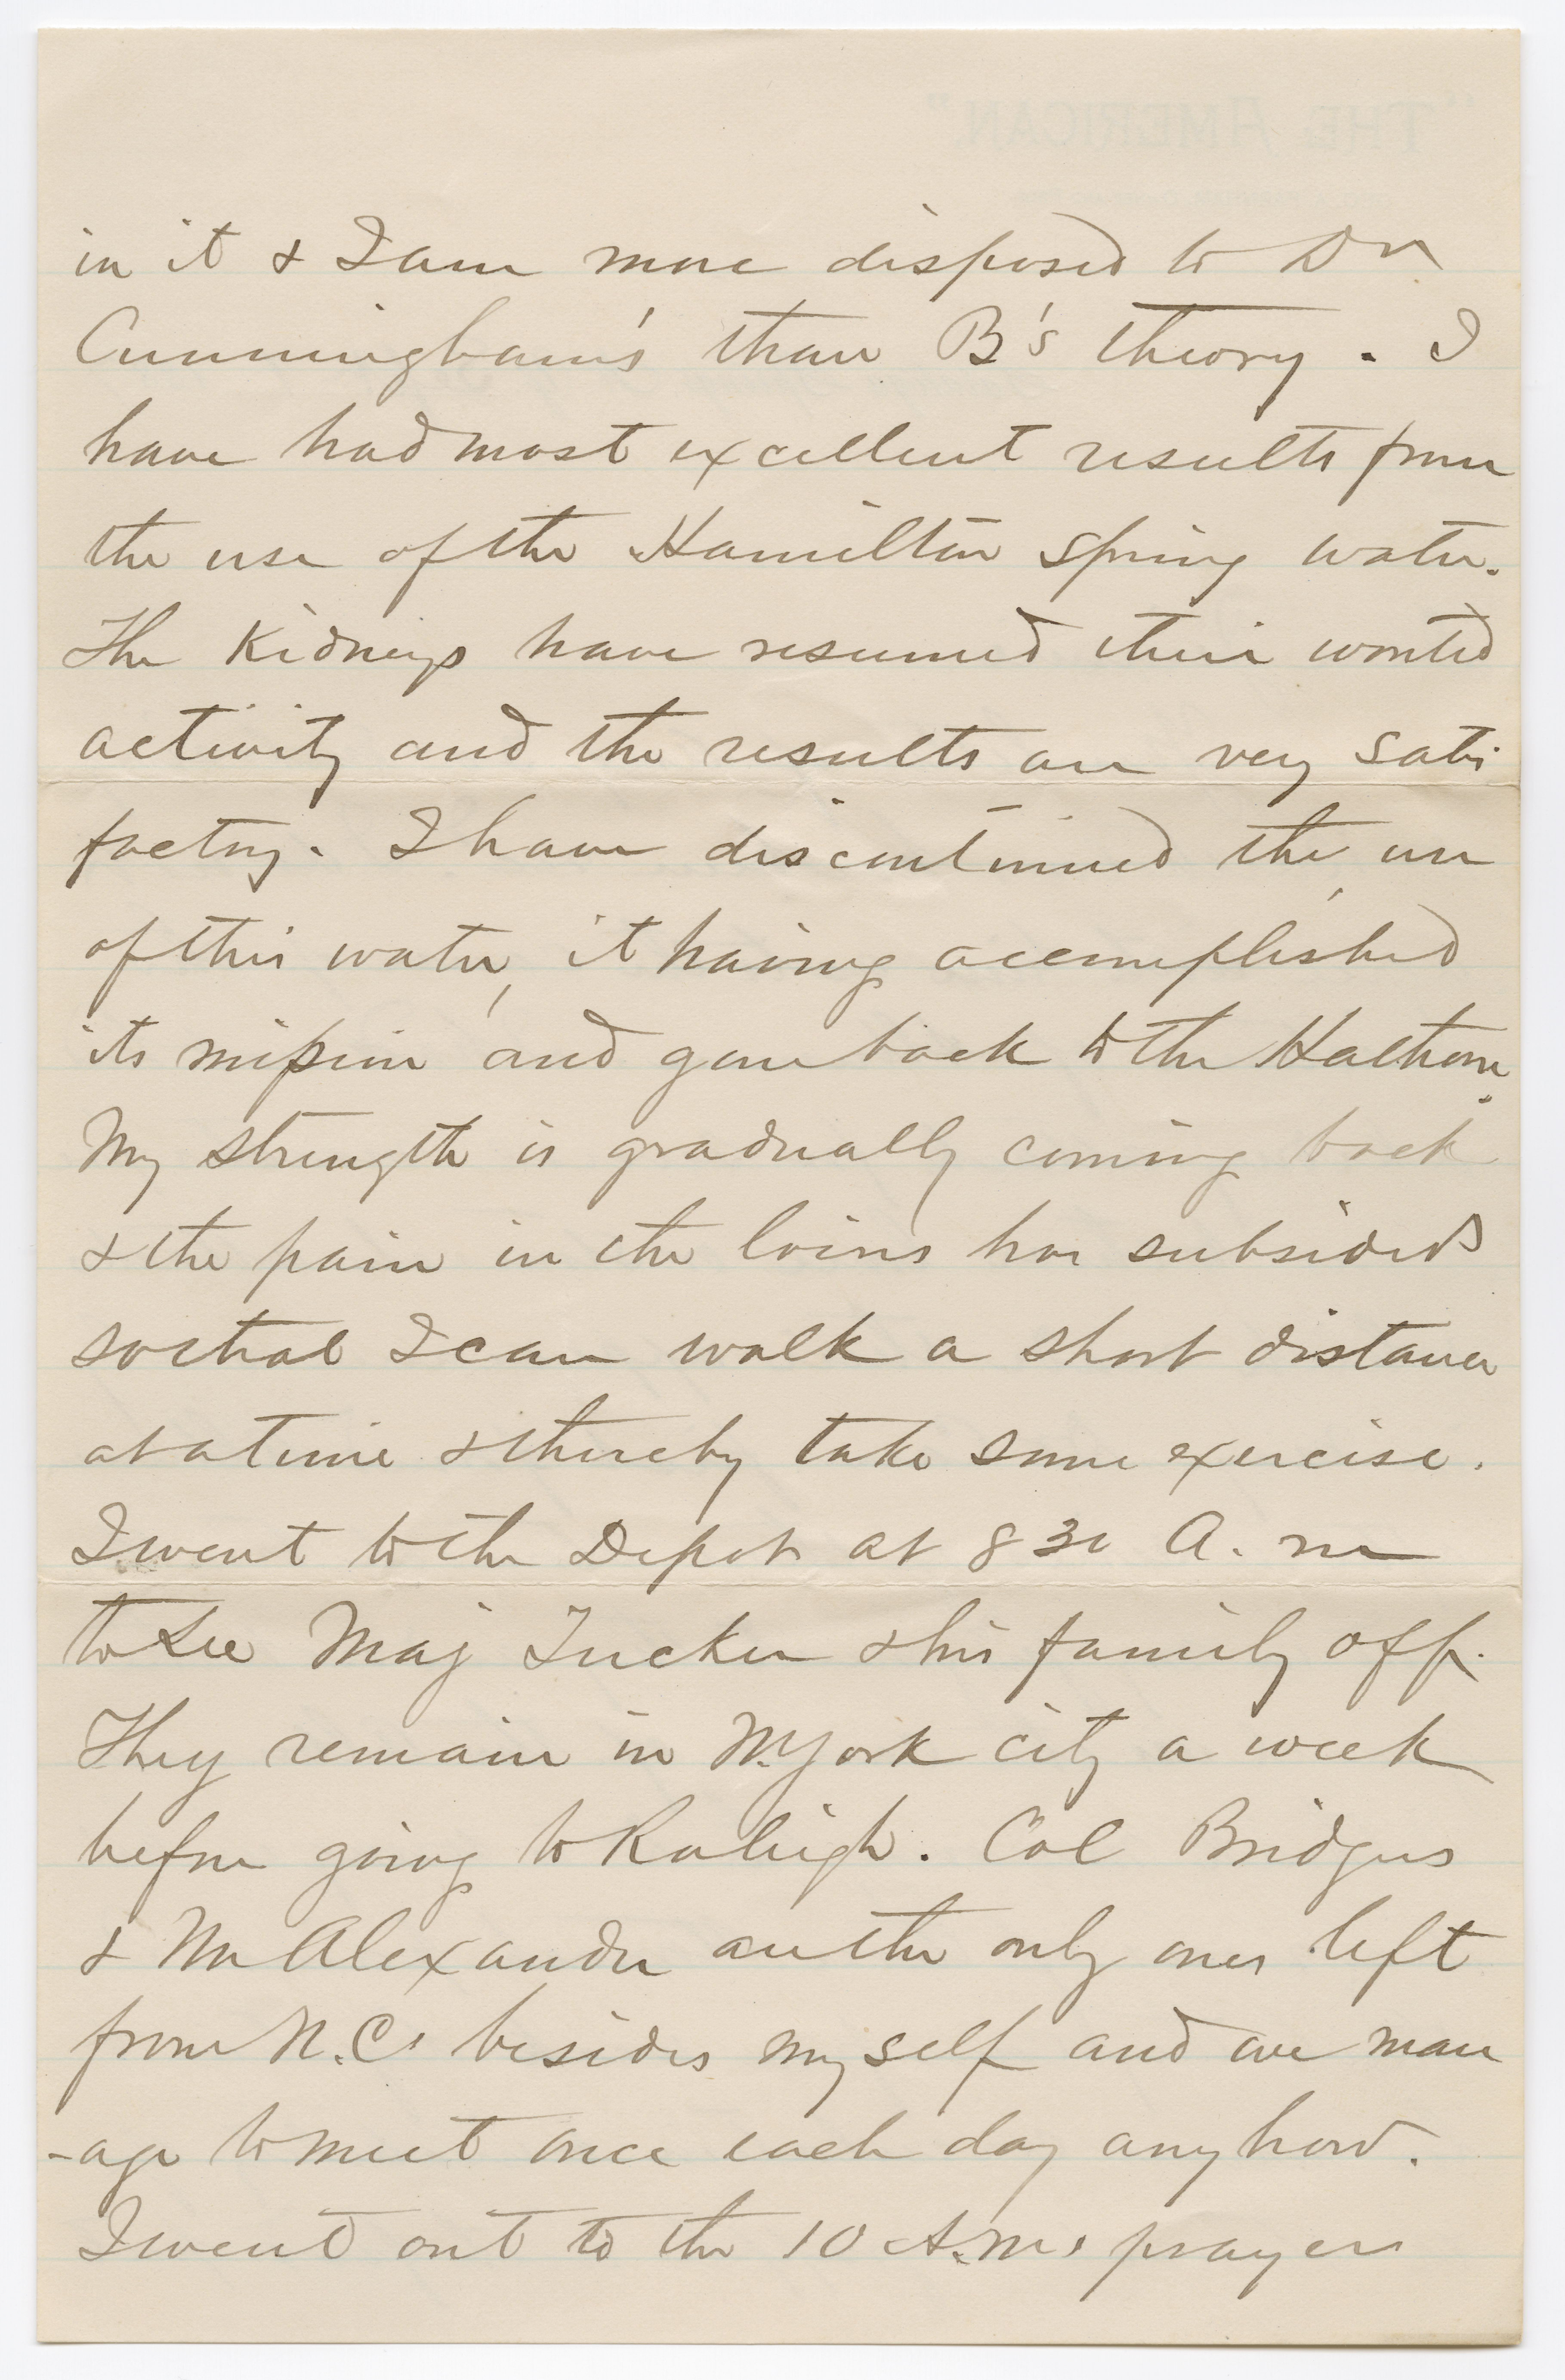 "THE AMERICAN"
in it & I am more disposed to Dr
Cunningham's than B's theory. I
have had most excellent results from
the use of the Hamilton Spring water.
The Kidneys have resumed their wonted
activity and the results are very satis
factory. I have discontinued the use
of this water, it having accomplished
its mission and gone back to the Hathorn.
My strength is gradually coming back
& the pain in the loins has subsided
so that I can walk a short distance
at a time & thereby take some exercise.
I went to the Depot at 8 30 A. m
to see Maj Tucker & his family off.
They remain in N. York city a week
before going to Raleigh. Col Bridgers
& Mr Alexander are the only ones left
from N.C. besides myself and we man
-age to meet once each day anyhow.
I went out to the 10 A.M. prayer